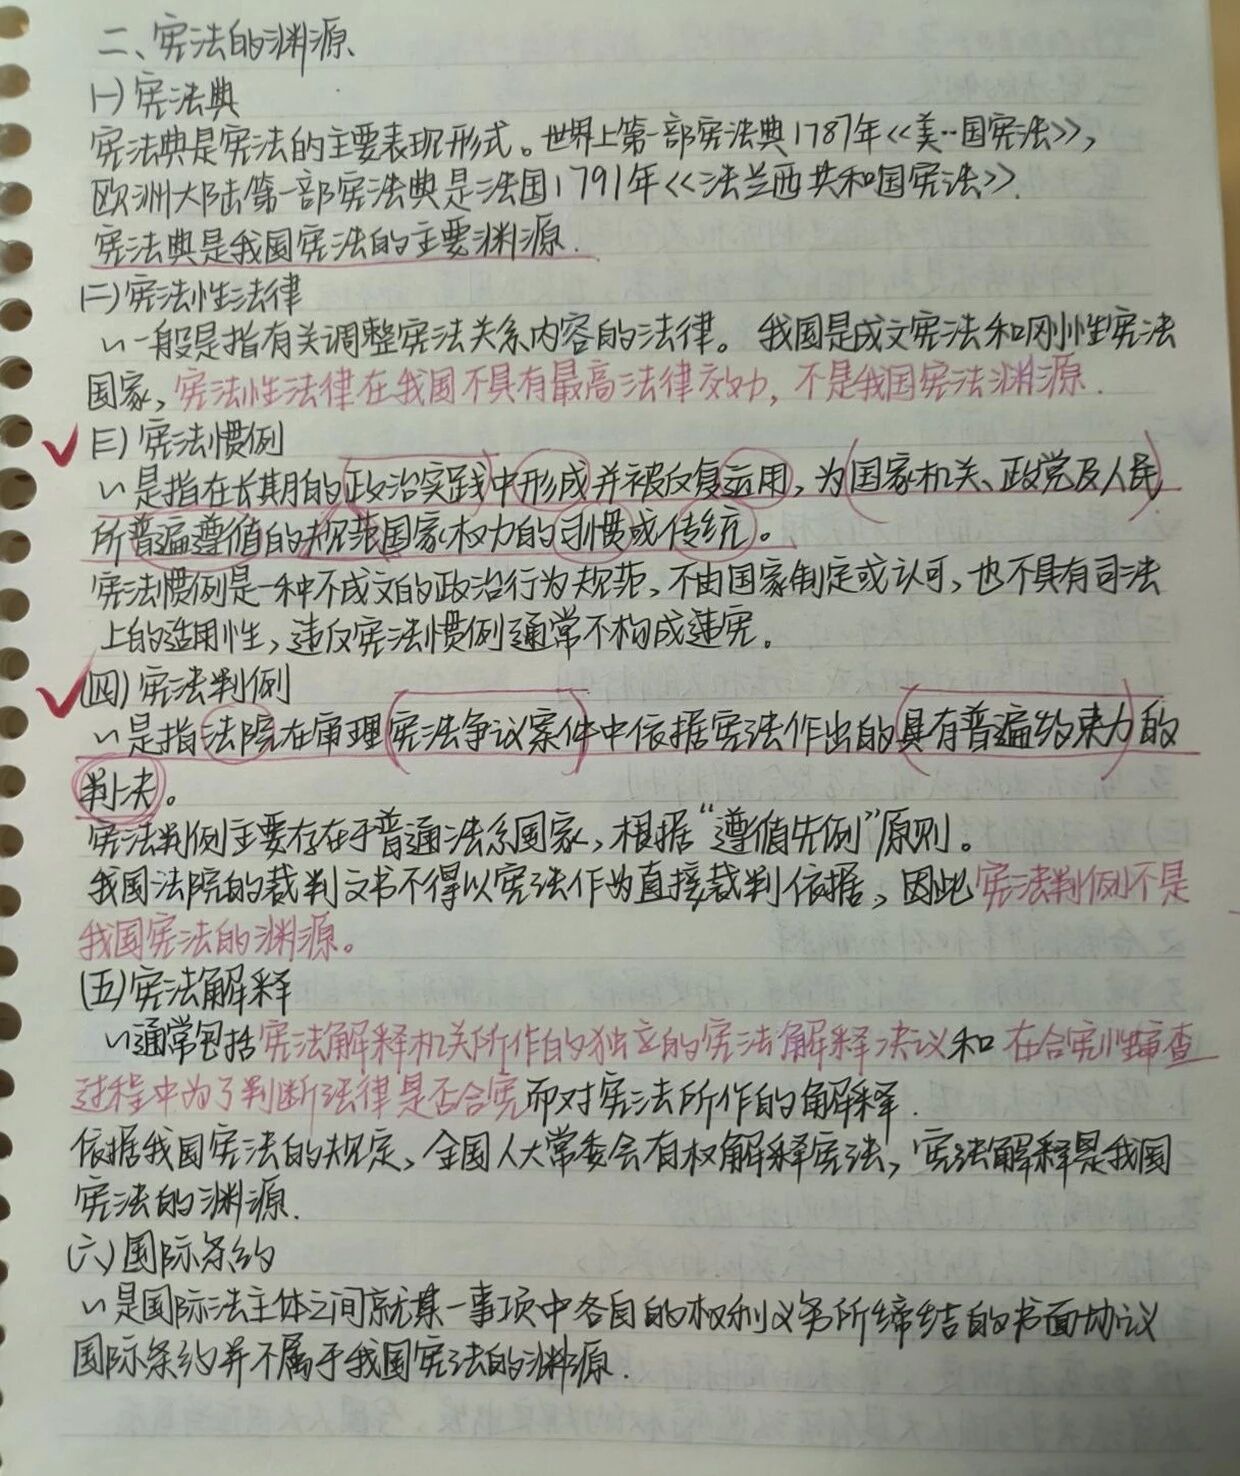 二、宪法的渊源、
(一)宪法典
宪法典是宪法的主要表现形式。世界上第一部宪法典1787年《美国宪法》,
欧洲大陆第一部宪法典是法国1791年《法兰西共和国宪法》.
宪法典是我国宪法的主要渊源.
(二)宪法性法律
~一般是指有关调整宪法关系内容的法律。我国是成文宪法和刚性宪法
国家,宪法性法律在我国不具有最高法律效力,不是我国宪法渊源.
(三)宪法惯例
~是指在长期的政治实践中形成并被反复运用,为国家机关、政党及人民
所普遍遵循的规范国家权力的习惯或传统。
宪法惯例是一种不成文的政治行为规范,不由国家制定或认可,也不具有司法
上的适用性,违反宪法惯例通常不构成违宪。
(四)宪法判例
~是指法院在审理宪法争议案件中依据宪法作出的具有普遍约束力的
判决。
宪法判例主要存在于普通法系国家,根据“遵循先例”原则。
我国法院的裁判文书不得以宪法作为直接裁判依据,因此宪法判例不是
我国宪法的渊源。
(五)宪法解释
~通常包括宪法解释机关所作的独立的宪法解释决议和在合宪性审查
过程中为了判断法律是否合宪而对宪法所作的解释.
依据我国宪法的规定,全国人大常委会有权解释宪法,宪法解释是我国
宪法的渊源.
(六)国际条约
~是国际法主体之间就某一事项中各自的权利义务所缔结的书面协议
国际条约并不属于我国宪法的渊源.